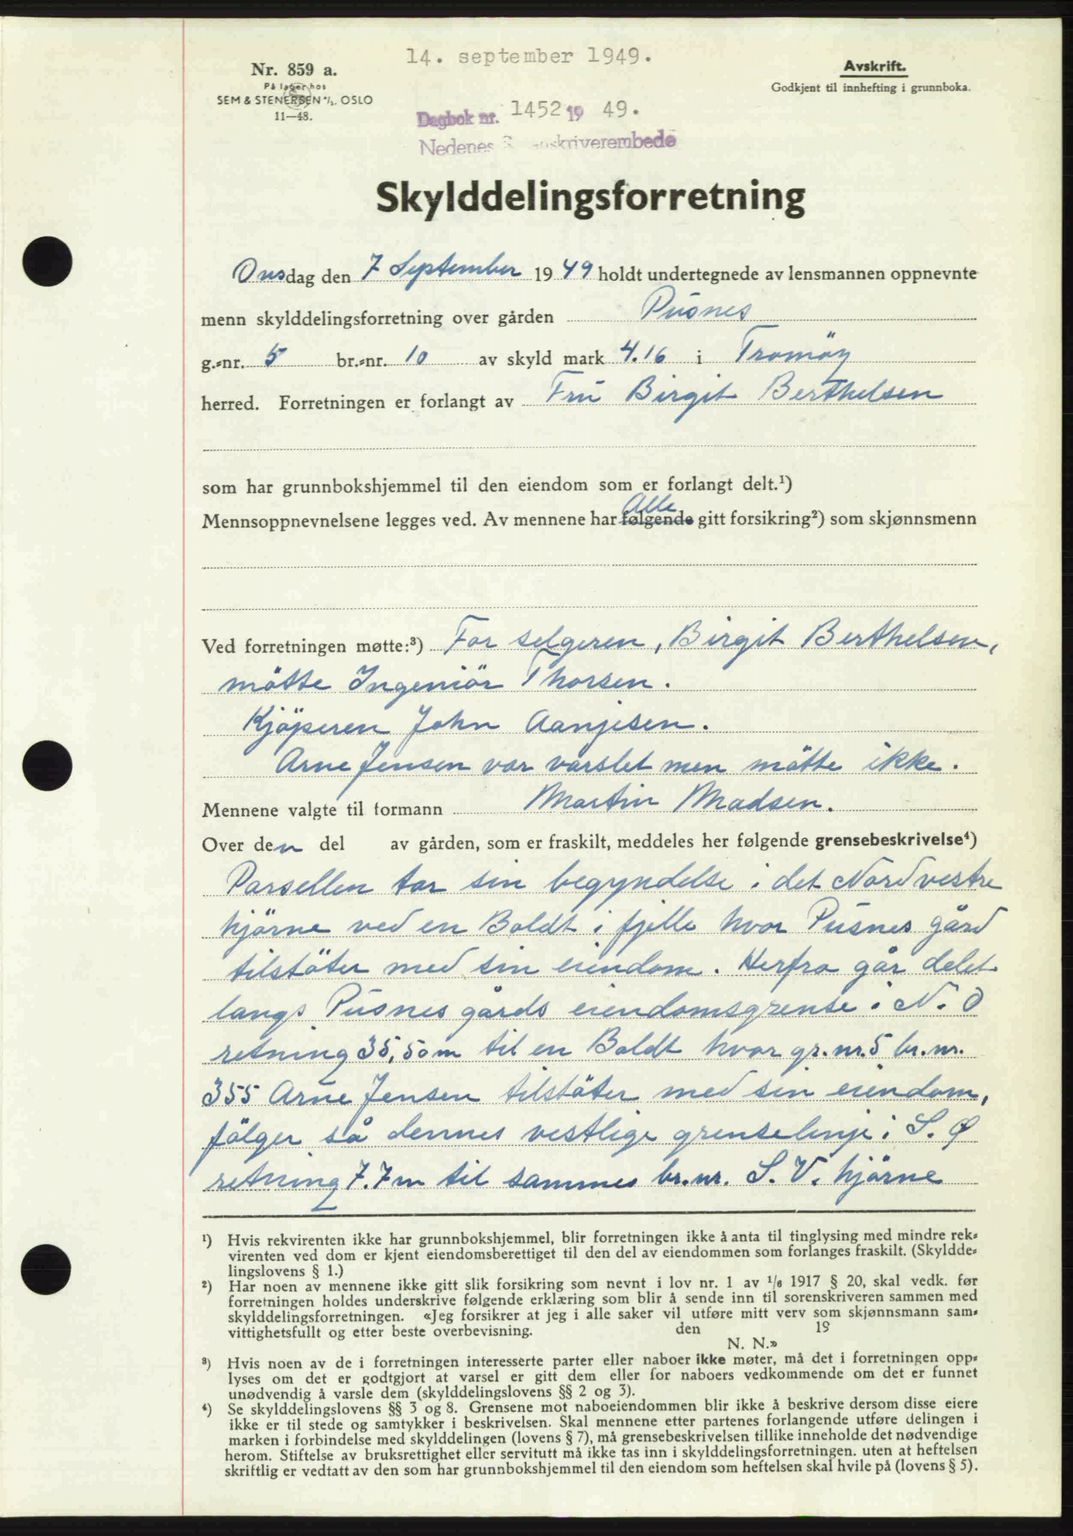 14. september 1949.
Nr. 859 a.
På lager hos
SEM & STENERSEN A/S. OSLO
11—48.
Avskrift.
Godkjent til innhefting i grunnboka.
Dagbok nr. 1452 19 49.
Nedenes skriverembede
Skylddelingsforretning
Onsdag den 7 September 1949 holdt undertegnede av lensmannen oppnevnte
menn skylddelingsforretning over gården Pusnes
g.-nr. 5 br.-nr. 10 av skyld mark 4.16 i Tromöy
herred. Forretningen er forlangt av Fru Birgit Berthelsen
som har grunnbokshjemmel til den eiendom som er forlangt delt.¹)
Alle
Mennsoppnevnelsene legges ved. Av mennene har følgende gitt forsikring²) som skjønnsmenn
Ved forretningen møtte:³) For selgeren, Birgit Berthelsen,
mötte Ingeniör Thorsen.
Kjöperen John Aanjesen.
Arne Jensen var varslet men mötte ikke.
Mennene valgte til formann Martin Madsen.
Over den del av gården, som er fraskilt, meddeles her følgende grensebeskrivelse⁴)
Parsellen tar sin begyndelse i det Nordvestre
hjörne ved en Boldt i fjelle hvor Pusnes gård
tilstöter med sin eiendom. Herfra går delet
langs Pusnes gårds eiendomsgrense i N. Ö
retning 35,50m til en Boldt hvor gr.nr. 5 br.nr.
355 Arne Jensen tilstöter med sin eiendom,
fölger så dennes vestlige grenselinje i S. Ø
retning 7.7m til sammes br.nr. S.V. hjörne
¹) Hvis rekvirenten ikke har grunnbokshjemmel, blir forretningen ikke å anta til tinglysing med mindre rek-
virenten ved dom er kjent eiendomsberettiget til den del av eiendommen som forlanges fraskilt. (Skyldde-
lingslovens § 1.)
²) Har noen av mennene ikke gitt slik forsikring som nevnt i lov nr. 1 av 1/6 1917 § 20, skal vedk. før
forretningen holdes underskrive følgende erklæring som blir å sende inn til sorenskriveren sammen med
skylddelingsforretningen. «Jeg forsikrer at jeg i alle saker vil utføre mitt verv som skjønnsmann sam-
vittighetsfullt og etter beste overbevisning. den 19
N. N.»
³) Hvis noen av de i forretningen interesserte parter eller naboer ikke møter, må det i forretningen opp-
lyses om det er godtgjort at varsel er gitt dem eller for naboers vedkommende om det er funnet
unødvendig å varsle dem (skylddelingslovens §§ 2 og 3).
⁴) Se skylddelingslovens §§ 3 og 8. Grensene mot naboeiendommen blir ikke å beskrive dersom disse eiere
ikke er til stede og samtykker i beskrivelsen. Skal mennene etter partenes forlangende utføre delingen i
marken i forbindelse med skylddelingen (lovens § 7), må grensebeskrivelsen tillike inneholde det nødvendige
herom. Stiftelse av bruksrettighet eller servitutt må ikke tas inn i skylddelingsforretningen. uten at heftelsen
skriftlig er vedtatt av den som har grunnbokshjemmel til den eiendom som heftelsen skal hvile på (lovens § 5).